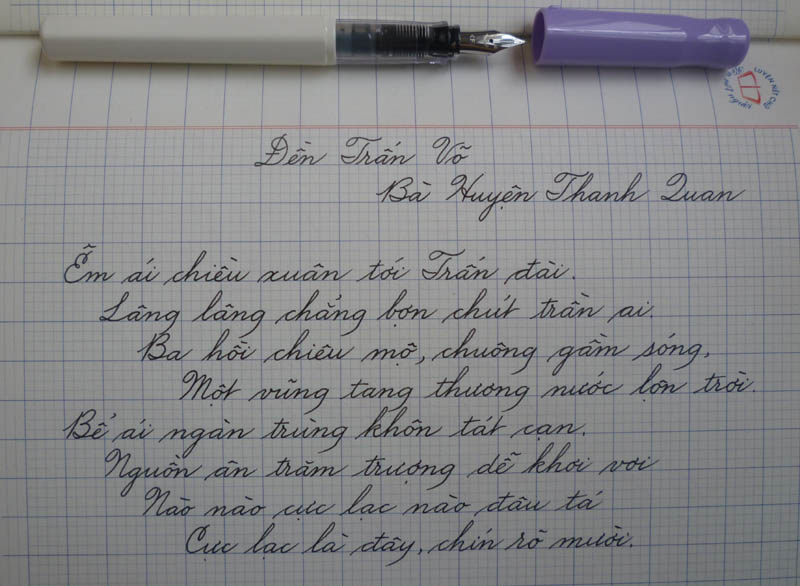 Đền Trấn Võ
Bà Huyện Thanh Quan
Ễm ái chiều xuân tới Trấn đài.
Lâng lâng chẳng bợn chút trần ai
Ba hồi chiêu mộ, chuông gầm sóng,
Một vũng tang thương nước lợn trời.
Bể ái ngàn trùng khôn tát cạn.
Nguồn ân trăm trượng dễ khơi vơi
Nào nào cực lạc nào đâu tá
Cực lạc là đây, chín rõ mười.
LUYỆN NÉT CHỮ